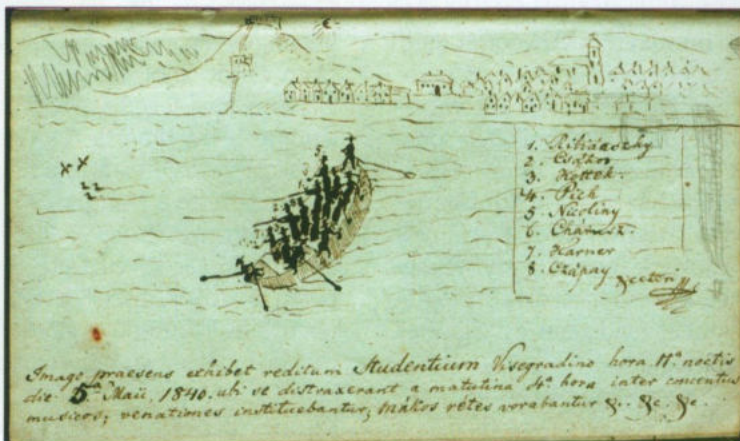 1. Riháaschy
2. Csákon
3. Kottek.
4. Pich
5. Nicoliny
6. Chamasz.
7. Karner
8. Czápay
&ceteri
Imago praesens exhibet reditum Studentium Visegradino hora 11ª noctis
die 5ª Maii, 1840. ubi se distraxerant a matutina 4ª hora inter concentus
musicos; venationes instituebantur; mákos rétes vorabantur &. &c. &c.